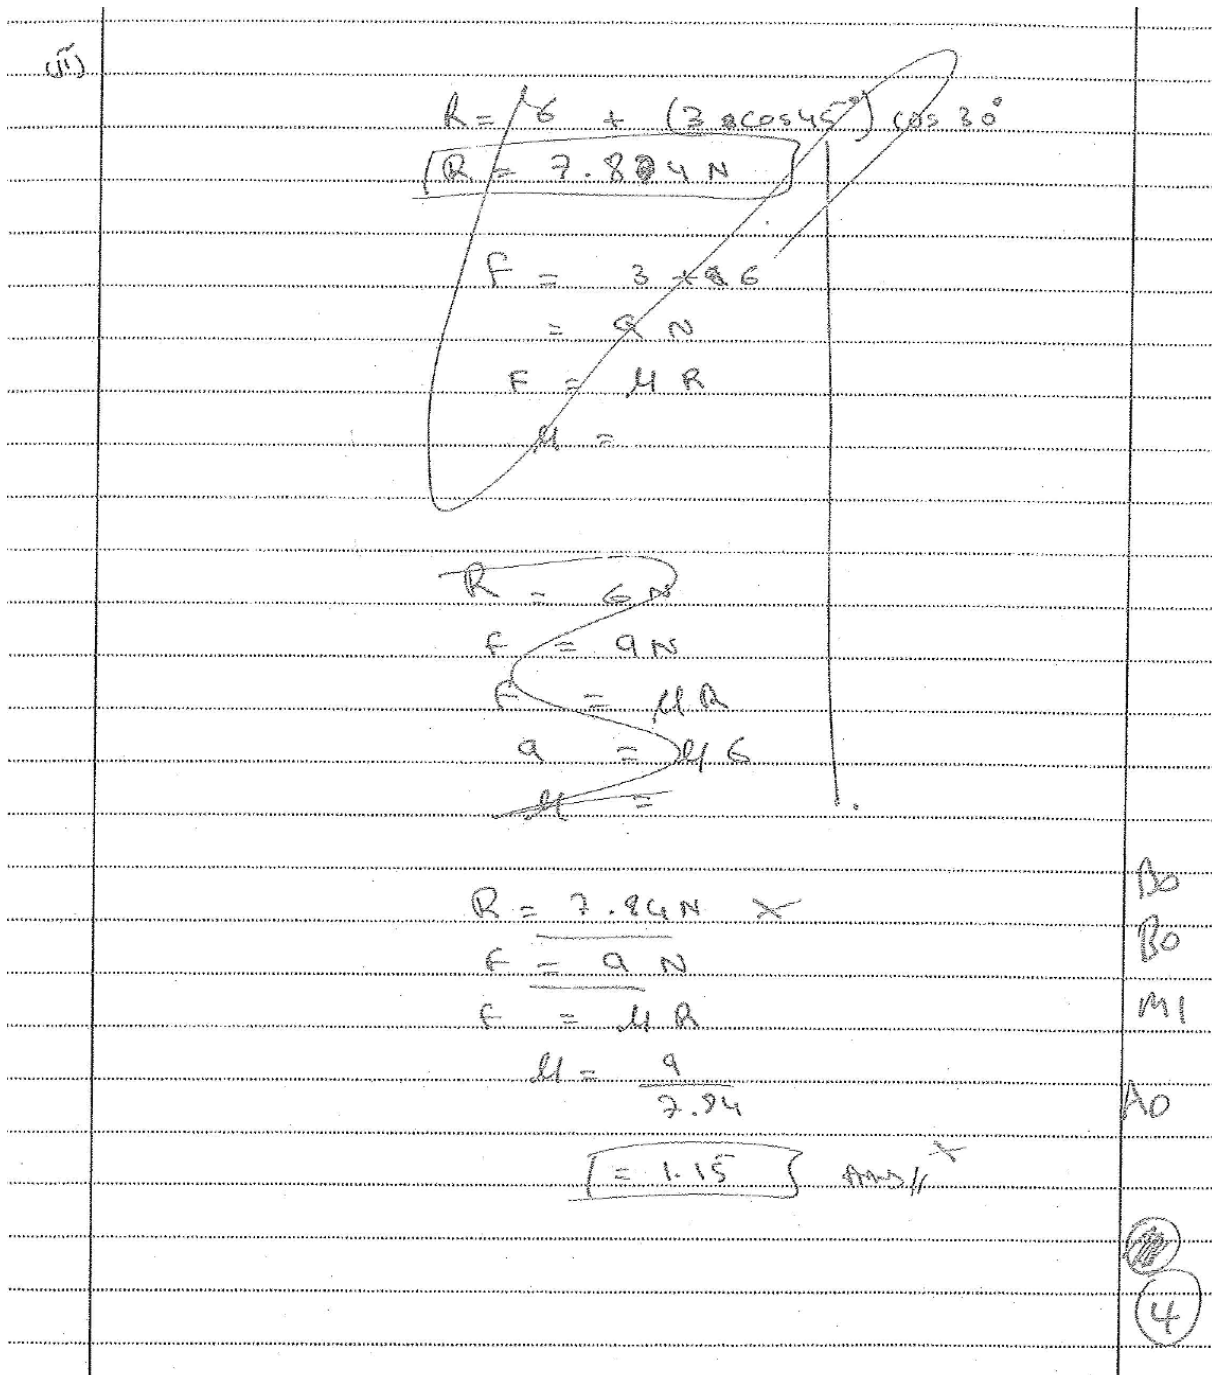 (ii)
R = 6 + (3 cos45°) cos 30°
R = 7.84 N
F = 3 + 6
= 9 N
F = μ R
μ =
R = 6 N
F = 9 N
F = μ R
9 = μ 6
μ =
R = 7.84 N ×
F = 9 N
F = μ R
μ = 9
7.84
= 1.15 Ans ×
B0
B0
M1
A0
4